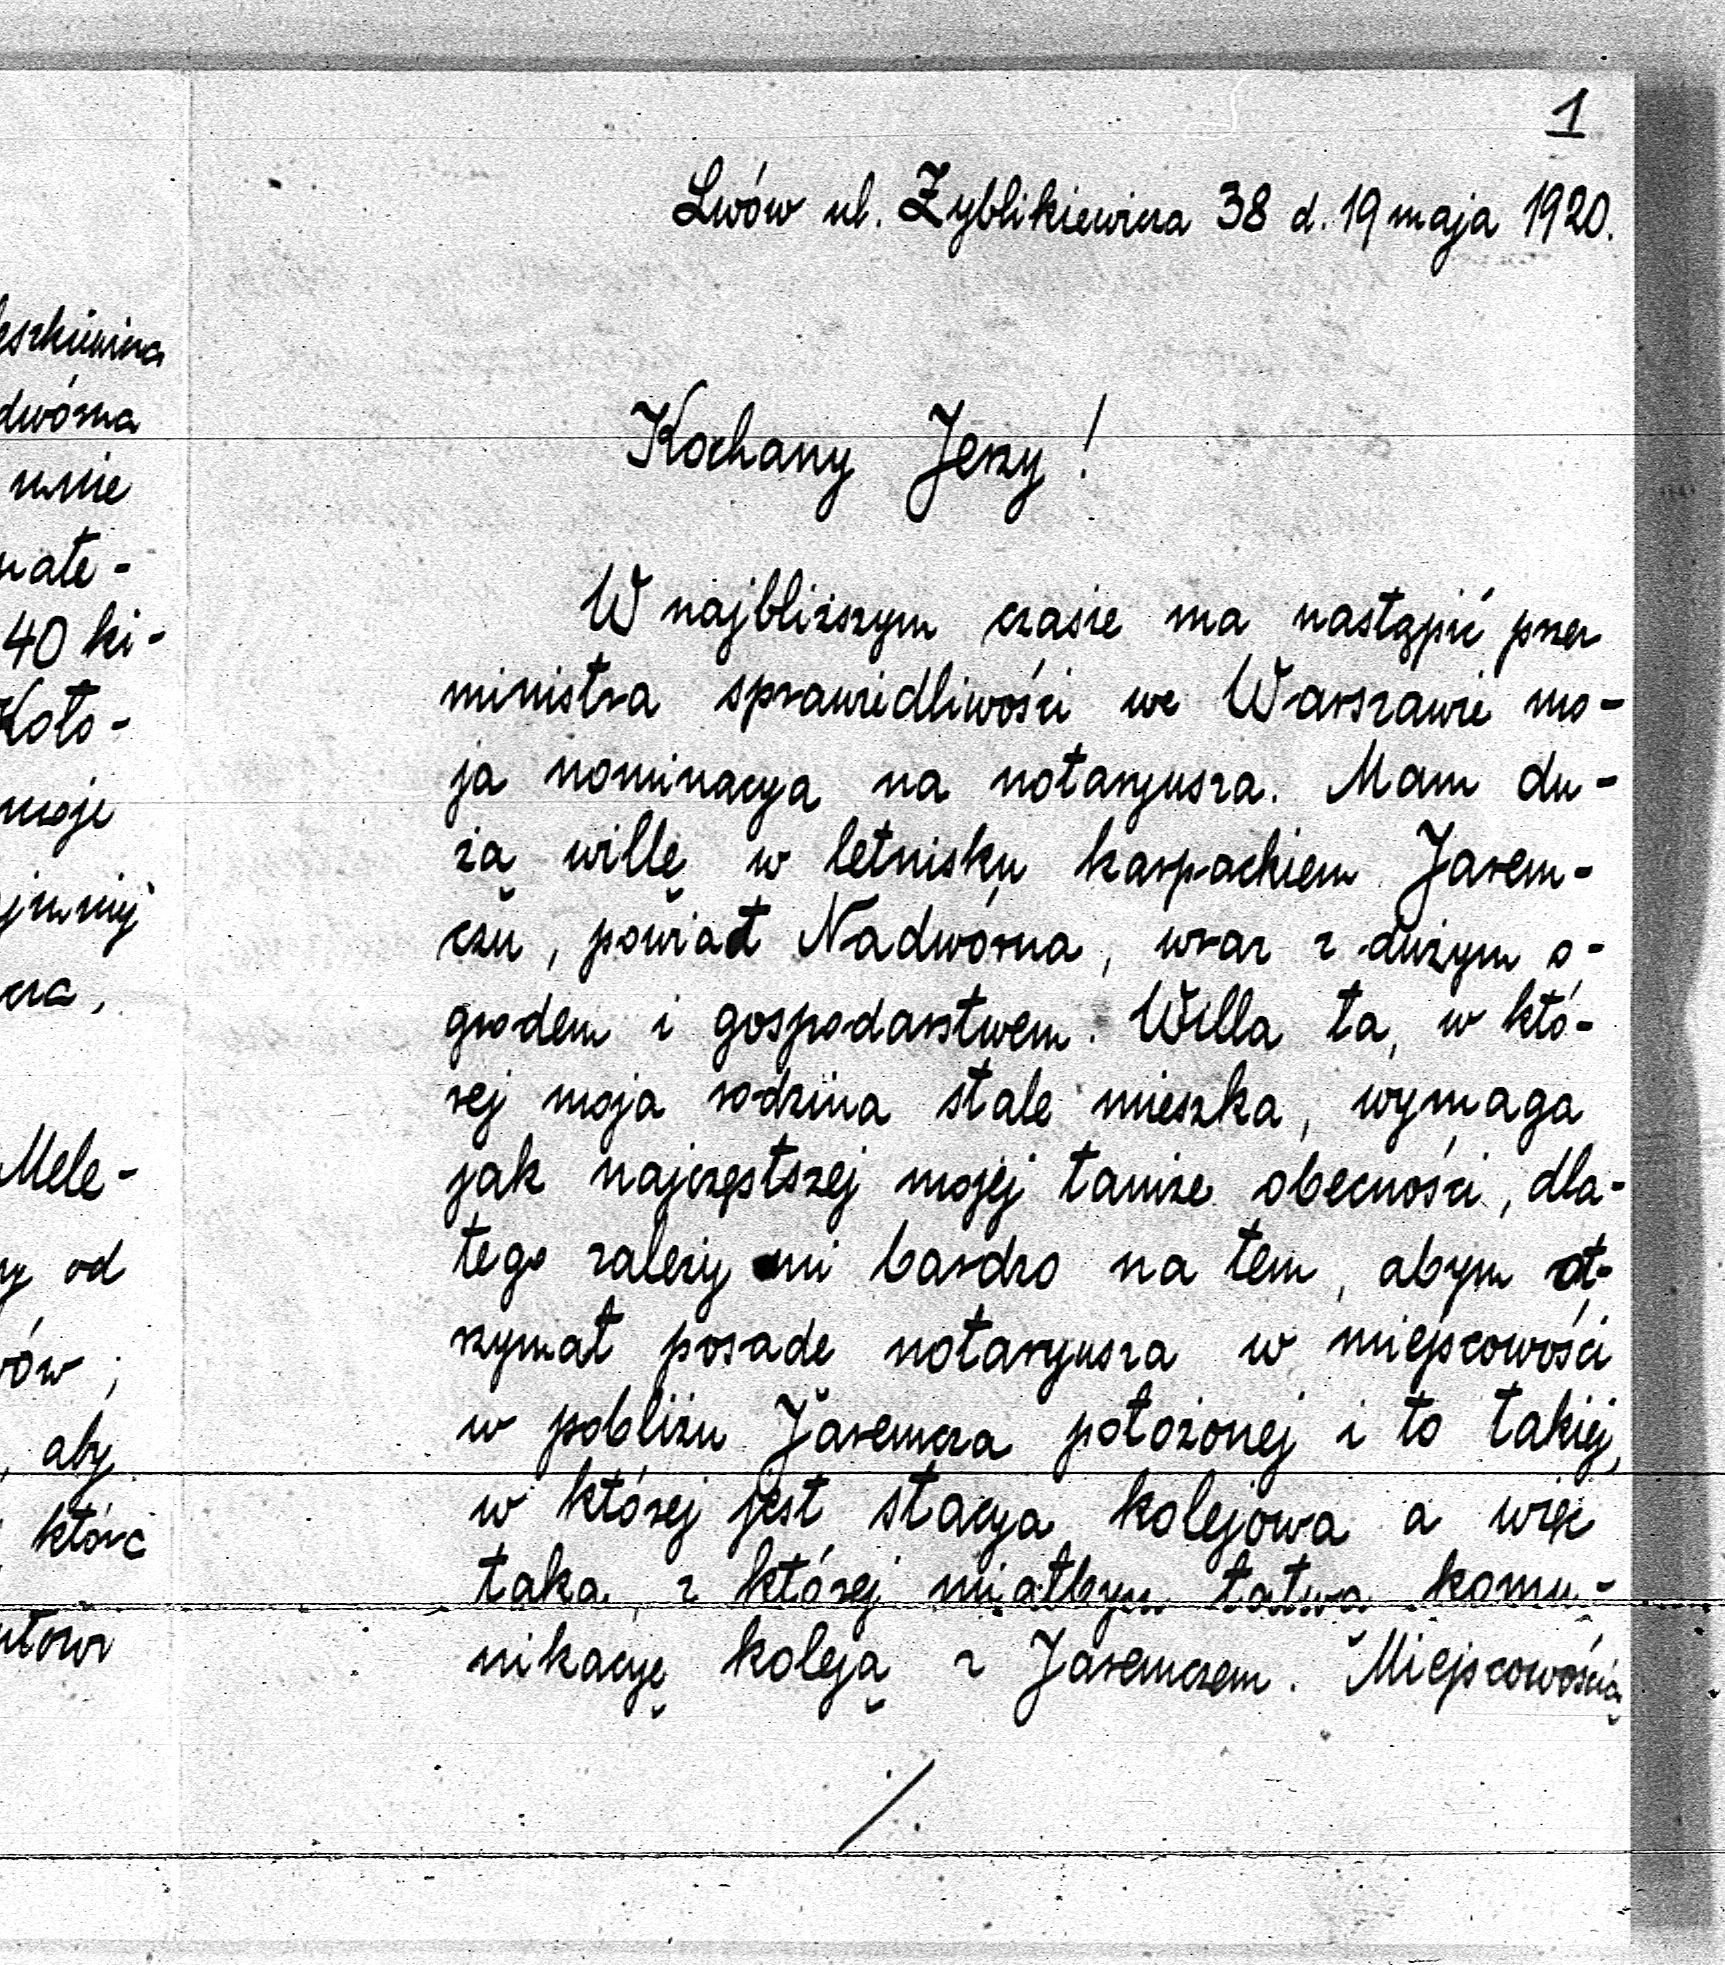 1
Lwów ul. Zyblikiewicza 38 d. 19 maja 1920.
Kochany Jerzy!
W najbliższym czasie ma nastąpić przez
ministra sprawiedliwości we Warszawie mo-
ja nominacya na notaryusza. Mam du-
żą willę w letnisku karpackiem Jarem-
czu, powiat Nadwórna, wraz z dużym o-
grodem i gospodarstwem. Willa ta, w któ-
rej moja rodzina stale mieszka, wymaga
jak najczęstszej mojej tamże obecności, dla-
tego zależy mi bardzo na tem, abym ot-
rzymał posadę notaryusza w miejscowości
w pobliżu Jaremcza położonej i to takiej,
w której jest stacya kolejowa a więc
taka, z której miałbym łatwą komu-
nikacyę koleją z Jaremczem. Miejscowością
./.
dwórna
mnie
mate-
40 ki-
Koło-
moje
Mele-
od
aby
które